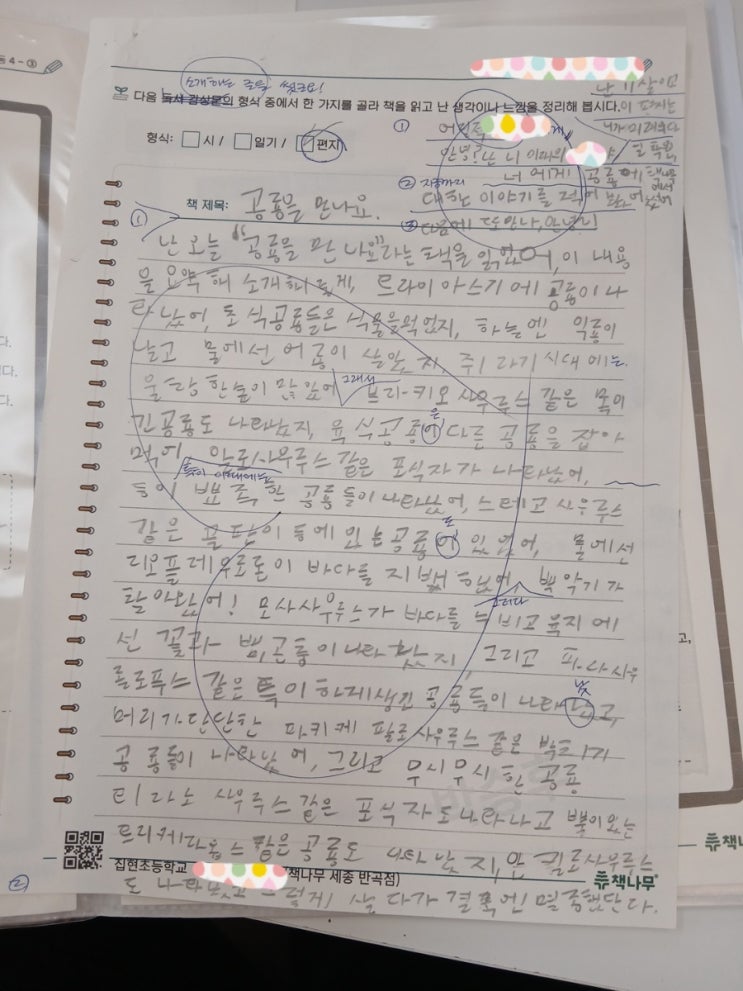 소개하는 글을 썼군요!
다음 독서 감상문의 형식 중에서 한 가지를 골라 책을 읽고 난 생각이나 느낌을 정리해 봅시다.
형식: 시 / 일기 / 편지
난 11살이고
이 편지는
안녕? 난 니 미래의
② 지금까지 너에게 공룡에
대한 이야기를 적어 봤어
③ 다음에 또 만나, 안녕!
책 제목: 공룡을 만나요.
① 난 오늘 "공룡을 만나요"라는 책을 읽었어, 이 내용
을 요약해 소개해줄게, 트라이아스기에 공룡이 나
타났어, 초식공룡들은 식물을 먹었지, 하늘엔 익룡이
날고 물에선 어룡이 살았지, 쥐라기 시대에는
울창한 숲이 많았어 그래서 브라키오사우루스 같은 목이
긴 공룡도 나타났지, 육식공룡은 다른 공룡을 잡아
먹어 알로사우루스 같은 포식자가 나타났어,
등이 뾰족한 공룡들이 나타났어, 스테고사우루스
같은 골판이 등에 있는 공룡도 있었어, 물에선
리오플레우로돈이 바다를 지배했어, 백악기가
찾아왔어! 모사사우루스가 바다를 누비고 육지에
선 꽃과 뱀, 곤충이 나타났지, 그리고 파라사우
롤로푸스 같은 특이하게 생긴 공룡들이 나타났고,
머리가 단단한 파키케팔로사우루스 같은 박치기
공룡들이 나타났어, 그리고 무시무시한 공룡
티라노사우루스 같은 포식자도 나타나고 뿔이 있는
트리케라톱스 같은 공룡도 나타났지, 안킬로사우루스
도 나타났고 그렇게 살다가 결국엔 멸종했단다.
집현초등학교
책나무 세종 반곡점)
책나무
책나무
②